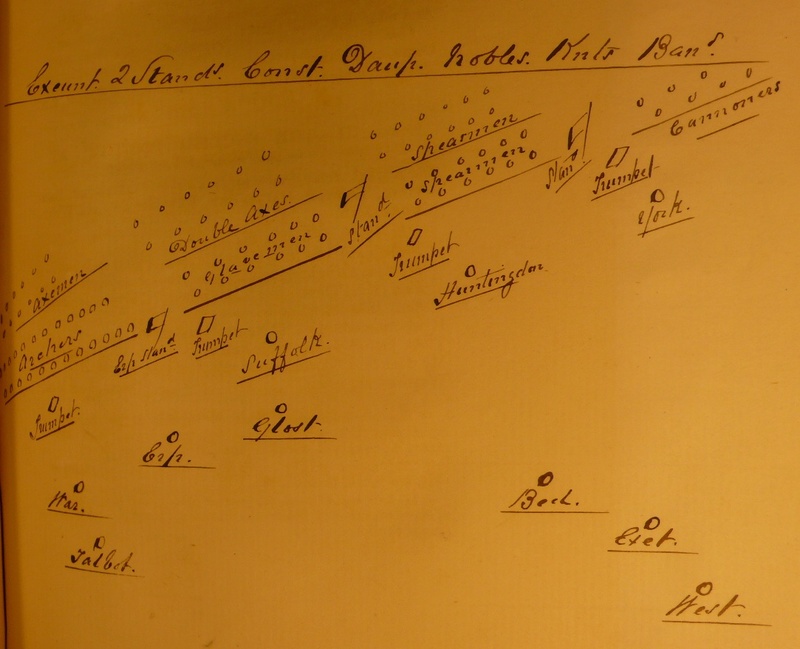 Exeunt. 2 Stands. Const. Daup. Nobles. Knts Bans.
Cannoners
Spearmen
Spearmen
Stand
Trumpet
York.
Double Axes.
Stand.
Glavemen
Trumpet
Huntingdon
Axemen
Archers
Erp Stand
Trumpet
Suffolk.
Trumpet.
Glost.
Erp.
War.
Bed.
Talbot.
Exet.
West.